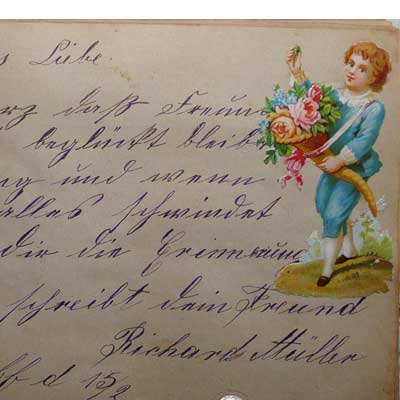 s Liebe.
rz daß Freun
beglückt bleibe
ng und wenn
alles schwindet
dir die Erinnrung
schreibt dein Freund
Richard Müller
d 15/2